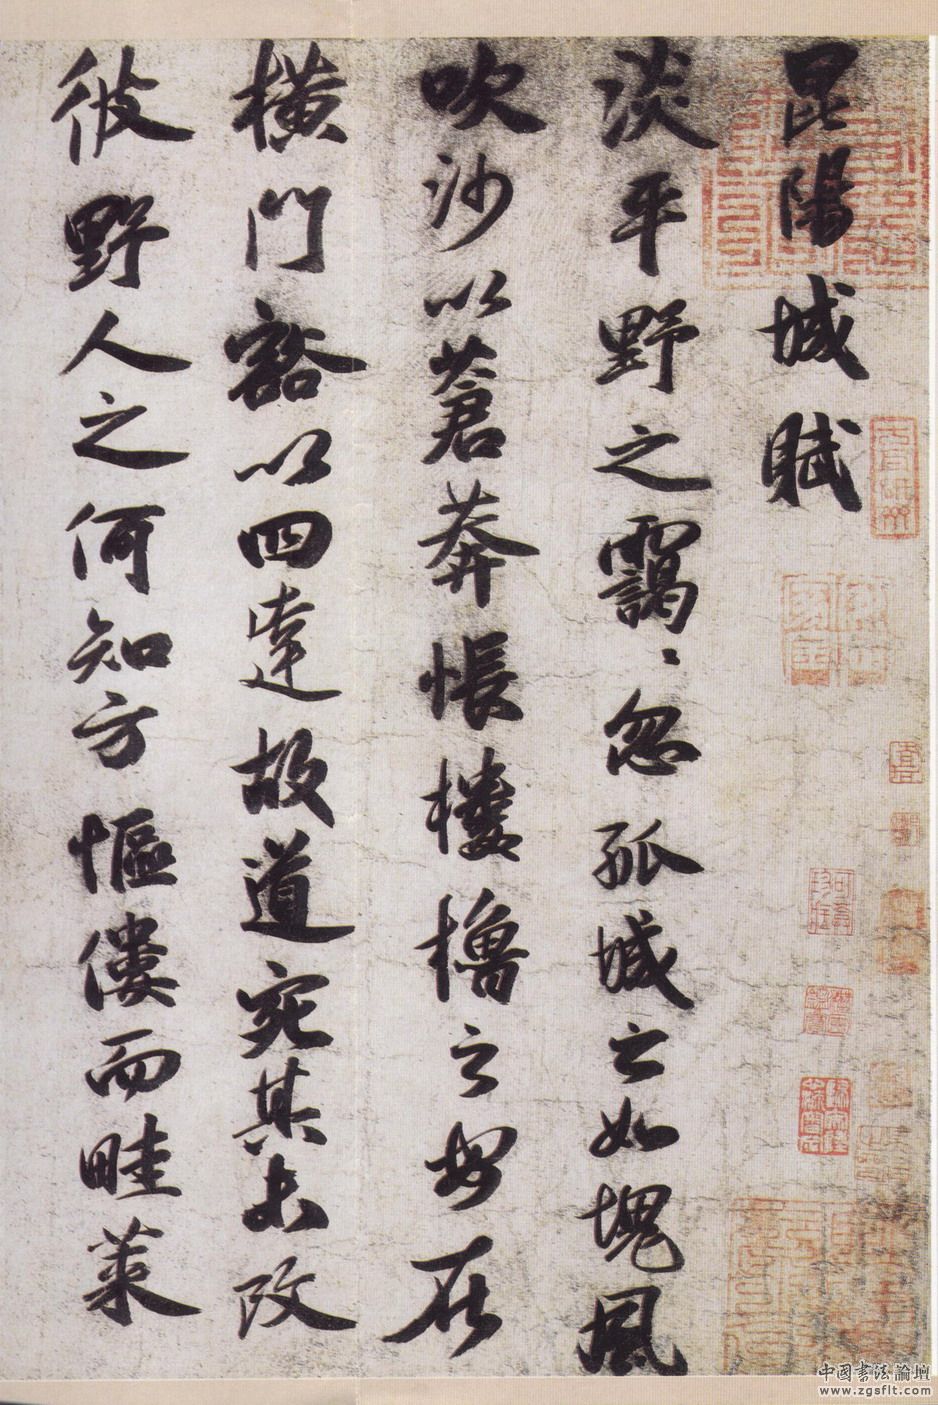 昆陽城賦
淡平野之靄〻忽孤城之如塊風
吹沙以蒼莽悵樓櫓之安在
橫門豁以四達故道宛其未改
彼野人之何知方傴僂而畦菜
中國書法論壇
www.zgsflt.com